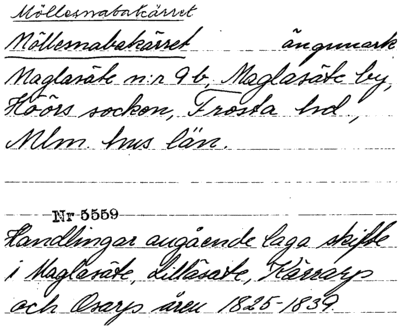 Möllesnabakärret
Möllesnabakärret ängsmark
Maglasäte n:r 9 b, Maglasäte by,
Höörs socken, Frosta hd,
Mlm. hus län.
Nr 5559
Handlingar angående laga skifte
i Maglasäte, Lillasäte, Kärrarp
och Osarp åren 1825-1839